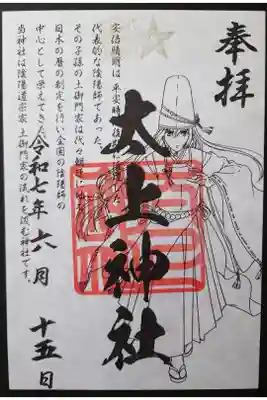 奉拝
太上神社
安倍晴明は、平安時代後
代表的な陰陽師であった。
その子孫の土御門家は代々朝廷に
日本の暦の制定を行い全国の陰陽師の
中心として栄えてきた
当神社は陰陽道宗家 土御門家の流れを汲む神社です。
令和七年六月十五日